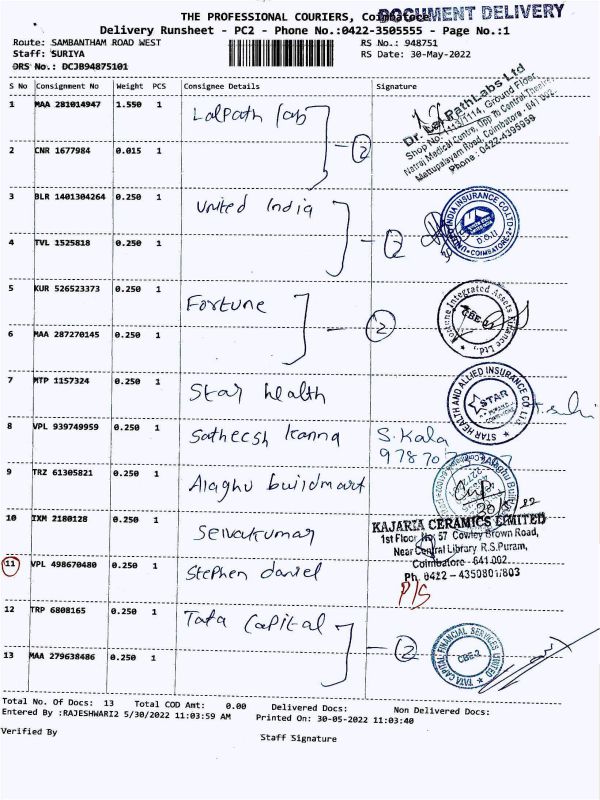 THE PROFESSIONAL COURIERS, Coimbatore
DOCUMENT DELIVERY
Delivery Runsheet - PC2 - Phone No.:0422-3505555 - Page No.:1
Route: SAMBANTHAM ROAD WEST
RS No.: 948751
Staff: SURIYA
RS Date: 30-May-2022
DRS No.: DCJB94875101
S No Consignment No Weight PCS Consignee Details Signature
1 MAA 281014947 1.550 1 Lalpath lab
Dr. Lal PathLabs Ltd
Shop No. 113/1114, Ground Floor,
Natraj Medical Centre, Opp To Central Theatre,
Mettupalayam Road, Coimbatore - 641 002.
Phone : 0422-4395959
2 CNR 1677984 0.015 1
2
3 BLR 1401304264 0.250 1 United India
UNITED INDIA INSURANCE CO.LTD
D.O.II
COIMBATORE-2
4 TVL 1525818 0.250 1
2
5 KUR 526523373 0.250 1 Fortune
Fortune Integrated Assets Finance Ltd.,
CBE-2
6 MAA 287270145 0.250 1
2
7 MTP 1157324 0.250 1 Star health
STAR HEALTH AND ALLIED INSURANCE CO. LTD.
STAR
8 VPL 939749959 0.250 1 Satheesh kanna S. Kala
9 TRZ 61305821 0.250 1 Alaghu buildmart
10 IXM 2180128 0.250 1 Selvakumar
KAJARIA CERAMICS LIMITED
1st Floor, No. 57 Cowley Brown Road,
Near Central Library R.S.Puram,
Coimbatore - 641 002.
Ph. 0422 - 4350801/803
11 VPL 498670480 0.250 1 Stephen daniel P/S
12 TRP 6808165 0.250 1 Tata Capital
TATA CAPITAL FINANCIAL SERVICES LIMITED
CBE-2
2
13 MAA 279638486 0.250 1
Total No. Of Docs: 13 Total COD Amt: 0.00 Delivered Docs: Non Delivered Docs:
Entered By :RAJESHWARI2 5/30/2022 11:03:59 AM Printed On: 30-05-2022 11:03:40
Verified By
Staff Signature